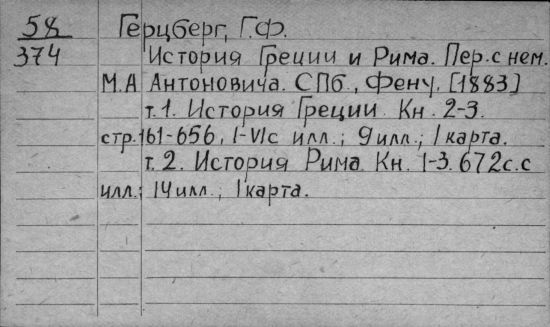 58 Герцберг, Г.Ф.
374 История Греции и Рима. Пер. с нем.
М.А. Антоновича. СПб., Фену, [1883]
т.1. История Греции. Кн. 2-3.
стр. 161-656, I-VI с илл.; 9 илл.; 1 карта.
т. 2. История Рима. Кн. 1-3. 672 с. с
илл.; 14 илл.; 1 карта.